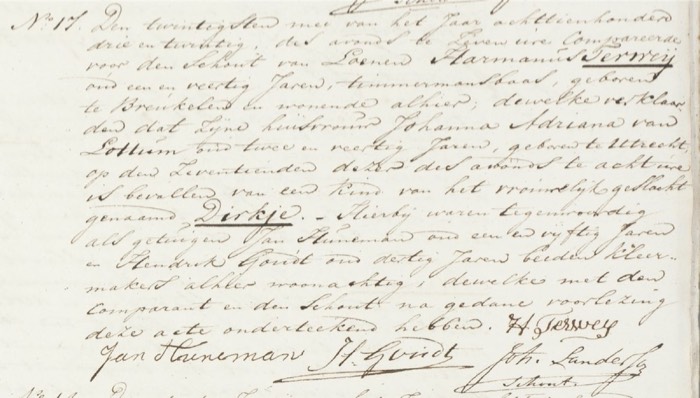 No 17. Den twintigsten mei van het Jaar achttienhonderd
drie en twintig, des avonds te Zeven ure Compareerde
voor den Schout van Loenen Harmanus Terweij
oud een en veertig Jaren, timmermansbaas, geboren
te Breukelen en wonende alhier, dewelke verklaar
den dat Zijne huisvrouw Johanna Adriana van
Lottum oud twee en veertig Jaren, geboren te Utrecht
op den Zeventienden dezer des avonds te acht ure
is bevallen van een Kind van het vrouwelijk geslacht
genaamd Dirkje. - Hierbij waren tegenwoordig
als getuigen Jan Huneman oud een en vijftig Jaren
en Hendrik Goudt oud dertig Jaren beiden Kleer-
makers alhier woonachtig; dewelke met den
Comparant en den Schout na gedane voorlezing
deze acte onderteekend hebben. H. Terweij
Jan Huneman H. Goudt Joh.
Schout